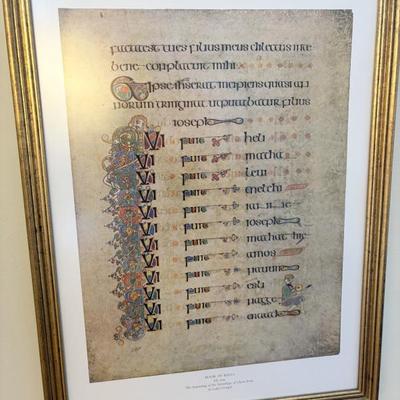 facta est tu es filius meus dilectus in te
bene conplacuit mihi
Et ipse ihs erat incipiens quasi an
norum triginta ut putabatur filius
ioseph
Qui fuit heli
Qui fuit matha
Qui fuit levi
Qui fuit melchi
Qui fuit
Qui fuit ioseph
Qui fuit mathathie
Qui fuit amos
Qui fuit
Qui fuit esli
Qui fuit nagge
Qui fuit
BOOK OF KELLS
The beginning of the Genealogy of Christ from
St Luke's Gospel